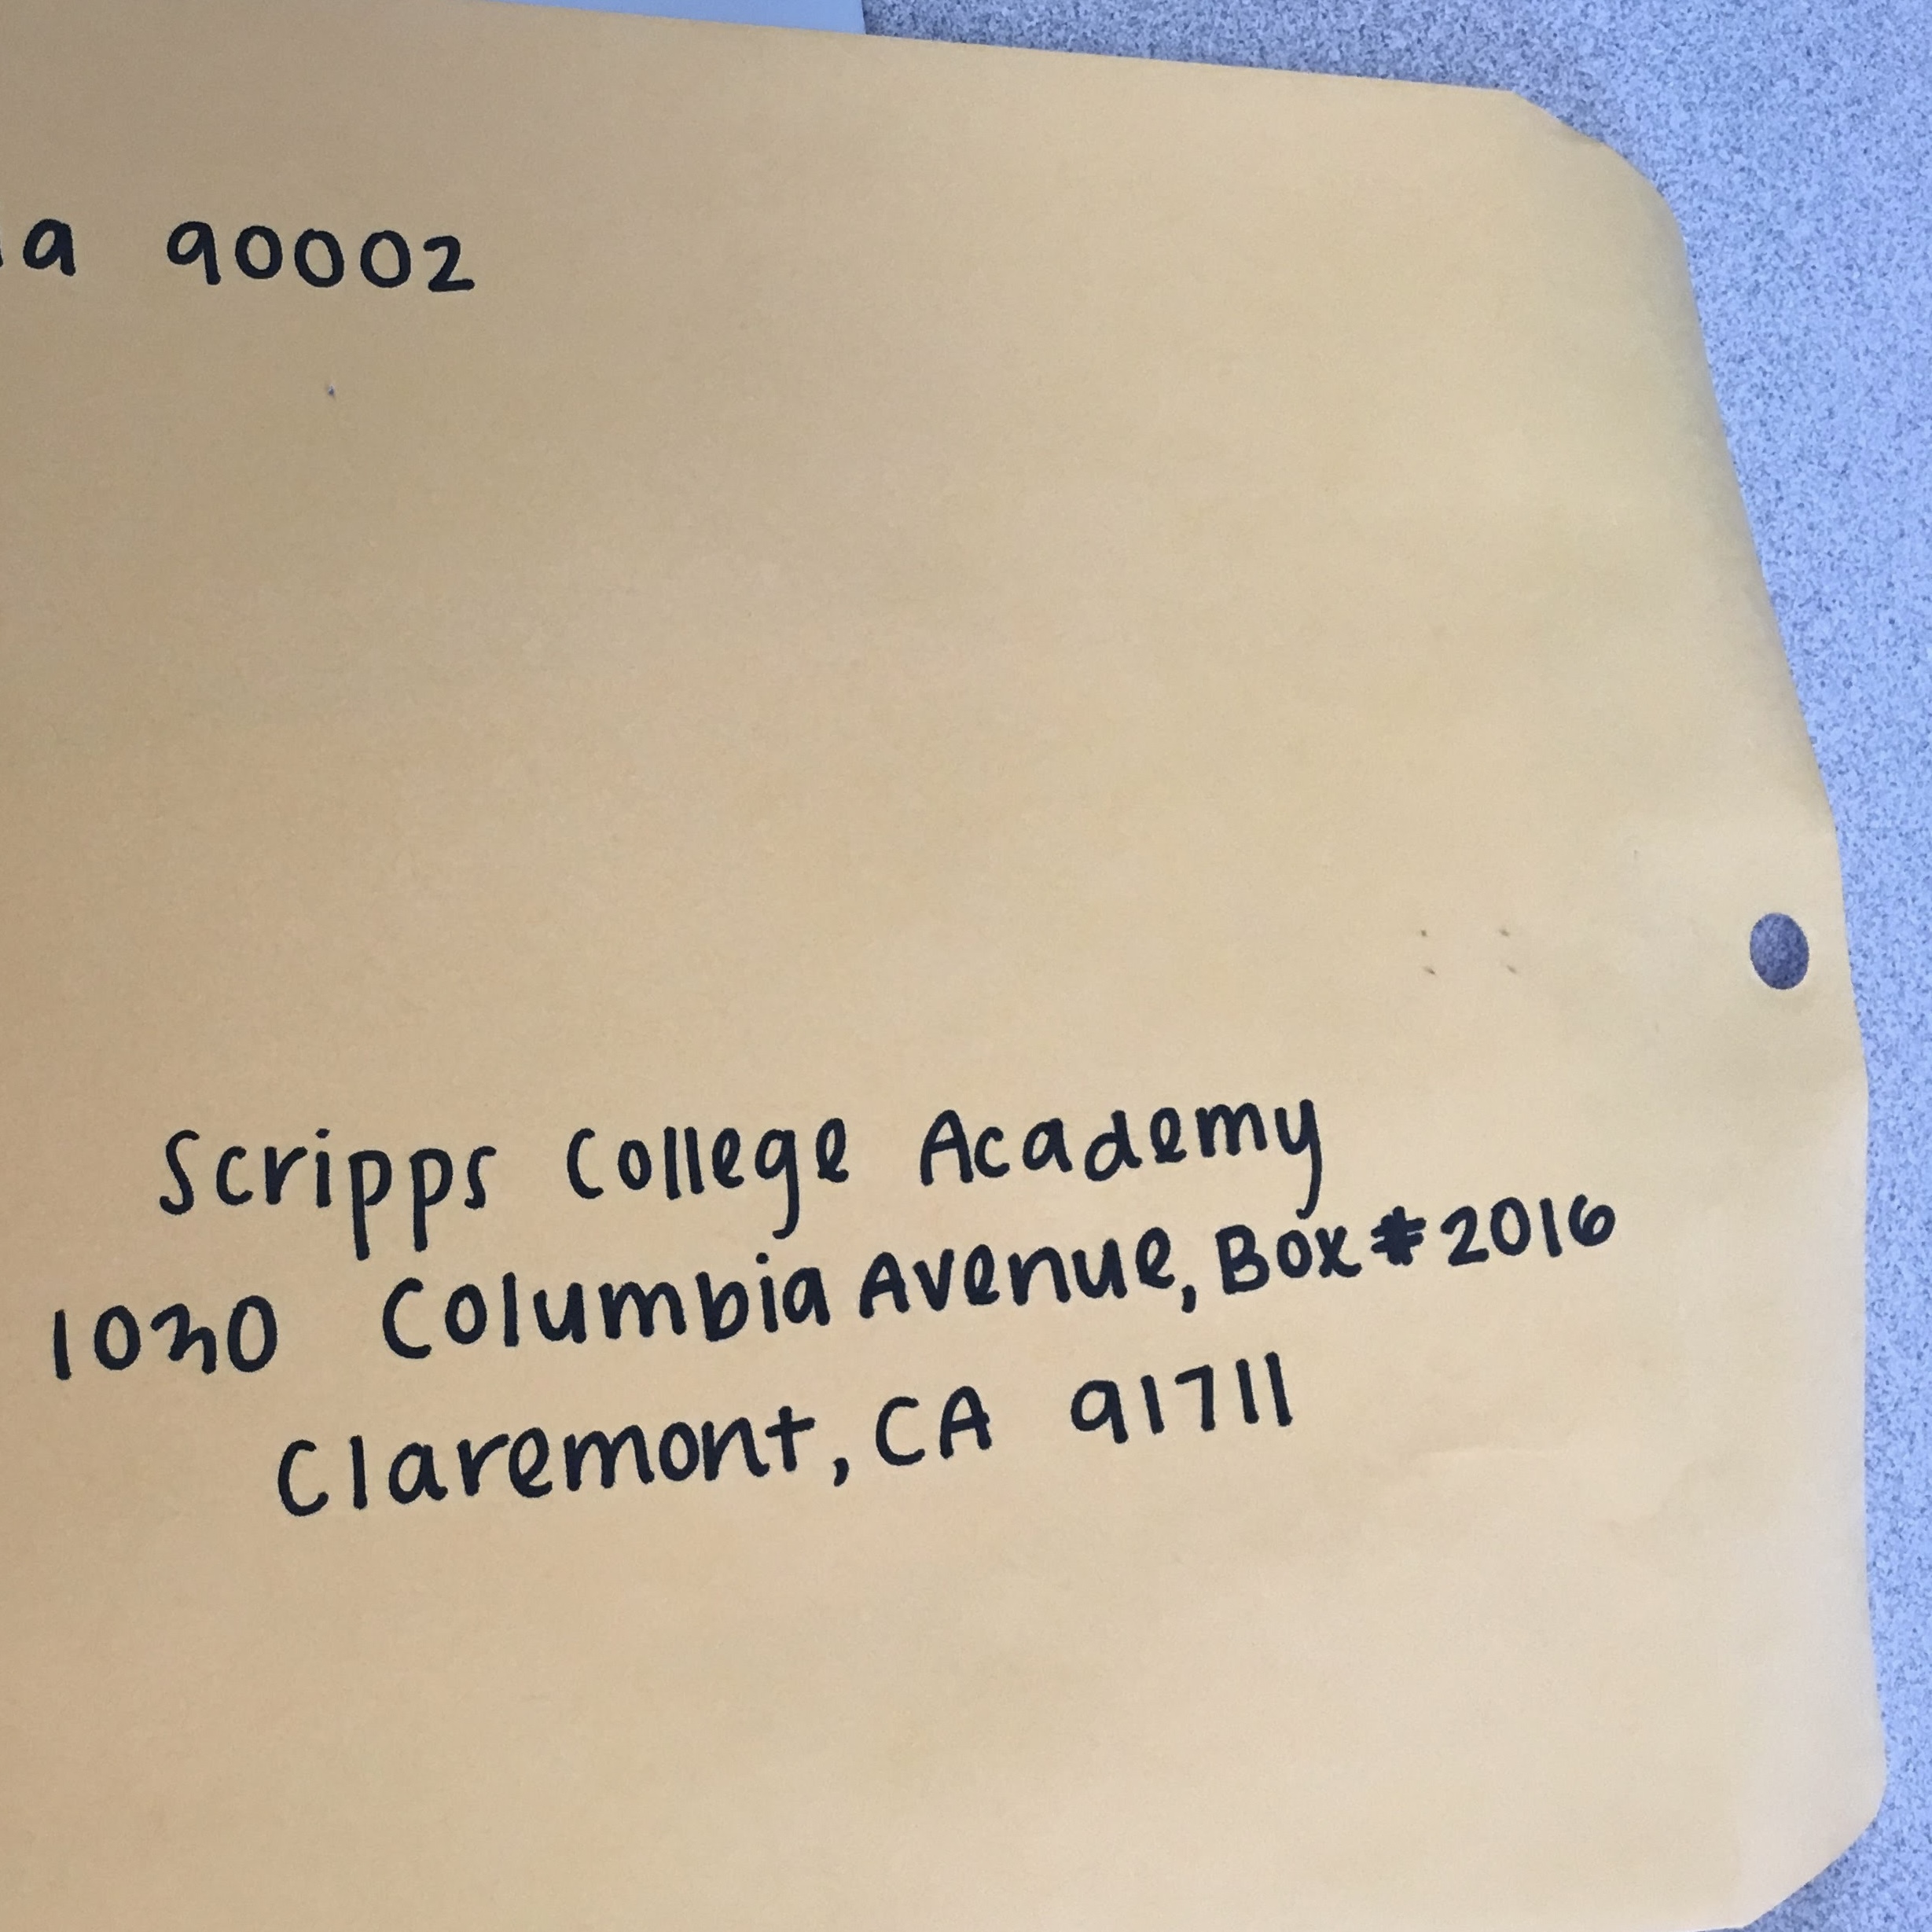 a 90002
Scripps College Academy
1030 Columbia Avenue, Box #2016
Claremont, CA 91711